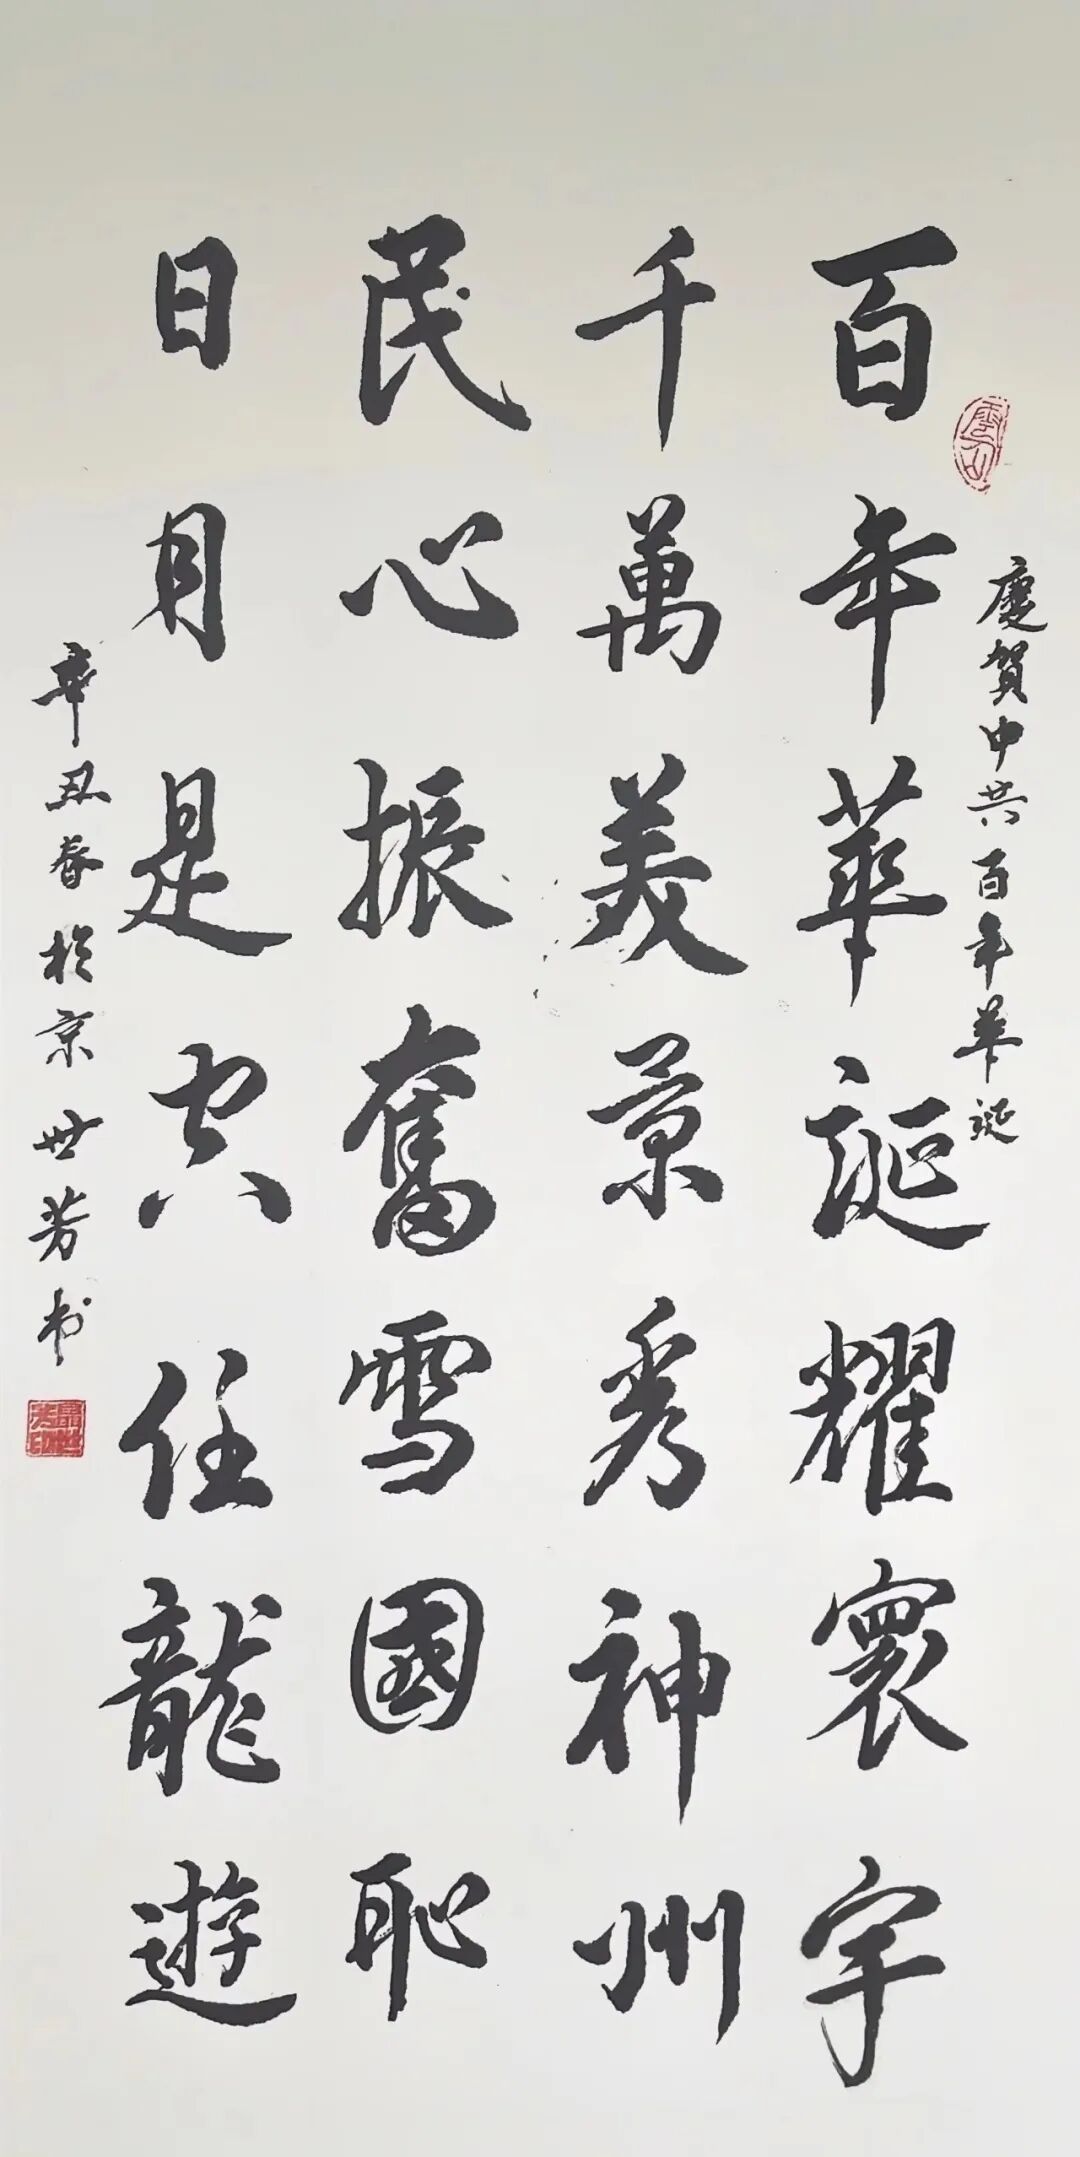 慶賀中共百年華誕
百年華誕耀寰宇
千萬美景秀神州
民心振奮雪國恥
日月星空任龍遊
辛丑春於京世芳书